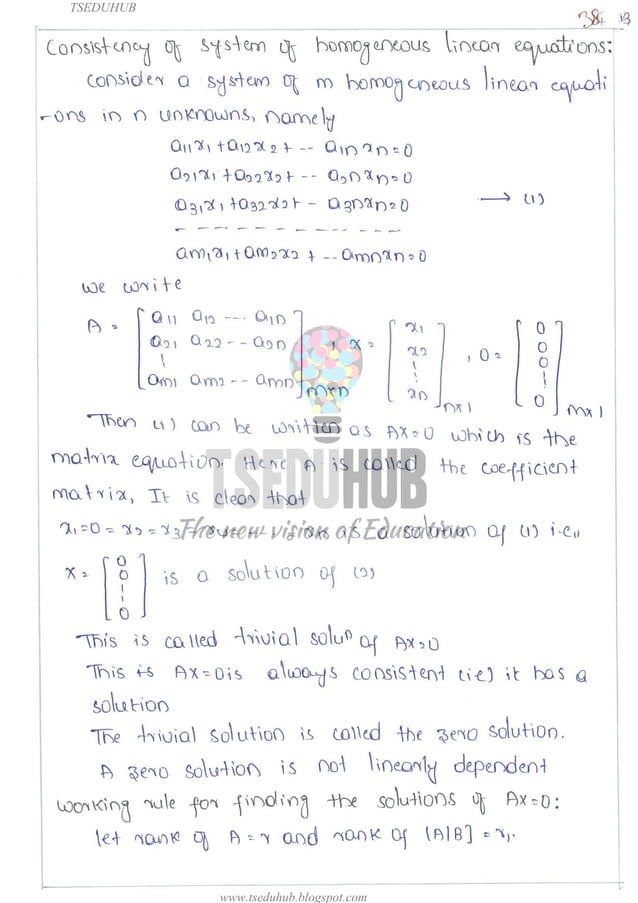 TSEDUHUB
38 13
Consistency of system of homogeneous linear equations:
Consider a system of m homogeneous linear equati
-ons in n unknowns, namely
a11x1 + a12x2 + -- a1n xn = 0
a21x1 + a22x2 + -- a2n xn = 0
a31x1 + a32x2 + - a3n xn = 0 → (1)
am1x1 + am2x2 + -- amn xn = 0
we write
A = [a11 a12 --- a1n
a21 a22 -- a2n
am1 am2 -- amn] m×n , x = [x1 x2 ⋮ xn] n×1 , 0 = [0 0 0 ⋮ 0] m×1
Then (1) can be written as AX=0 which is the
matrix equation. Here A is called the coefficient
matrix, It is clear that
TSEDUHUB
x1=0=x2=x3 solution of (1) i.e.,
The new vision of Education
x = [0 0 ⋮ 0] is a solution of (2)
This is called trivial solun of AX=0
This is AX=0 is always consistent (i.e) it has a
solution
The trivial solution is called the zero solution.
A zero solution is not linearly dependent
working rule for finding the solutions of AX=0:
let rank of A=r and rank of [A|B] = r1.
www.tseduhub.blogspot.com